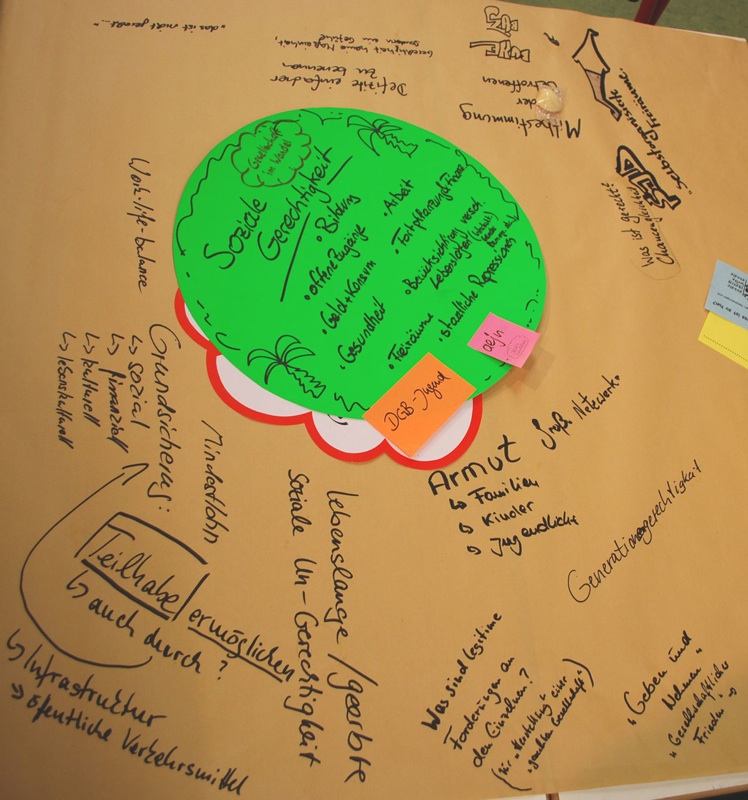 Gesellschaft
im Wandel
Soziale
Gerechtigkeit
• Bildung
• offene Zugänge
• Geld + Konsum
• Gesundheit
• Arbeit
• Fortpflanzung
• Berücksichtigung versch.
Lebenslagen
• staatliche Repressionen
• Freiräume
DGB-Jugend
aejn
"das ist nicht gerecht..."
Gerechtigkeit
sondern ein Gefühl
Defizite einfacher
zu benennen
Mitbestimmung
der
Betroffenen
Selbstorganisation
Freiräume
Was ist gerecht?
Work-life-balance
Grundsicherung:
↳ sozial
↳ finanziell
↳ kulturell
Mindestlohn
Teilhabe ermöglichen
↳ auch durch?
↳ Infrastruktur
→ öffentliche Verkehrsmittel
lebenslange / geerbte
soziale Un-Gerechtigkeit
Armut
↳ Familien
↳ Kinder
↳ Jugendliche
große Netzwerk.
Generationengerechtigkeit
Was sind legitime
Forderungen an
den Einzelnen?
(für "Herstellung" einer
"gerechten Gesellschaft")
"Geben und
Nehmen"
"Gesellschaftlicher
Frieden"